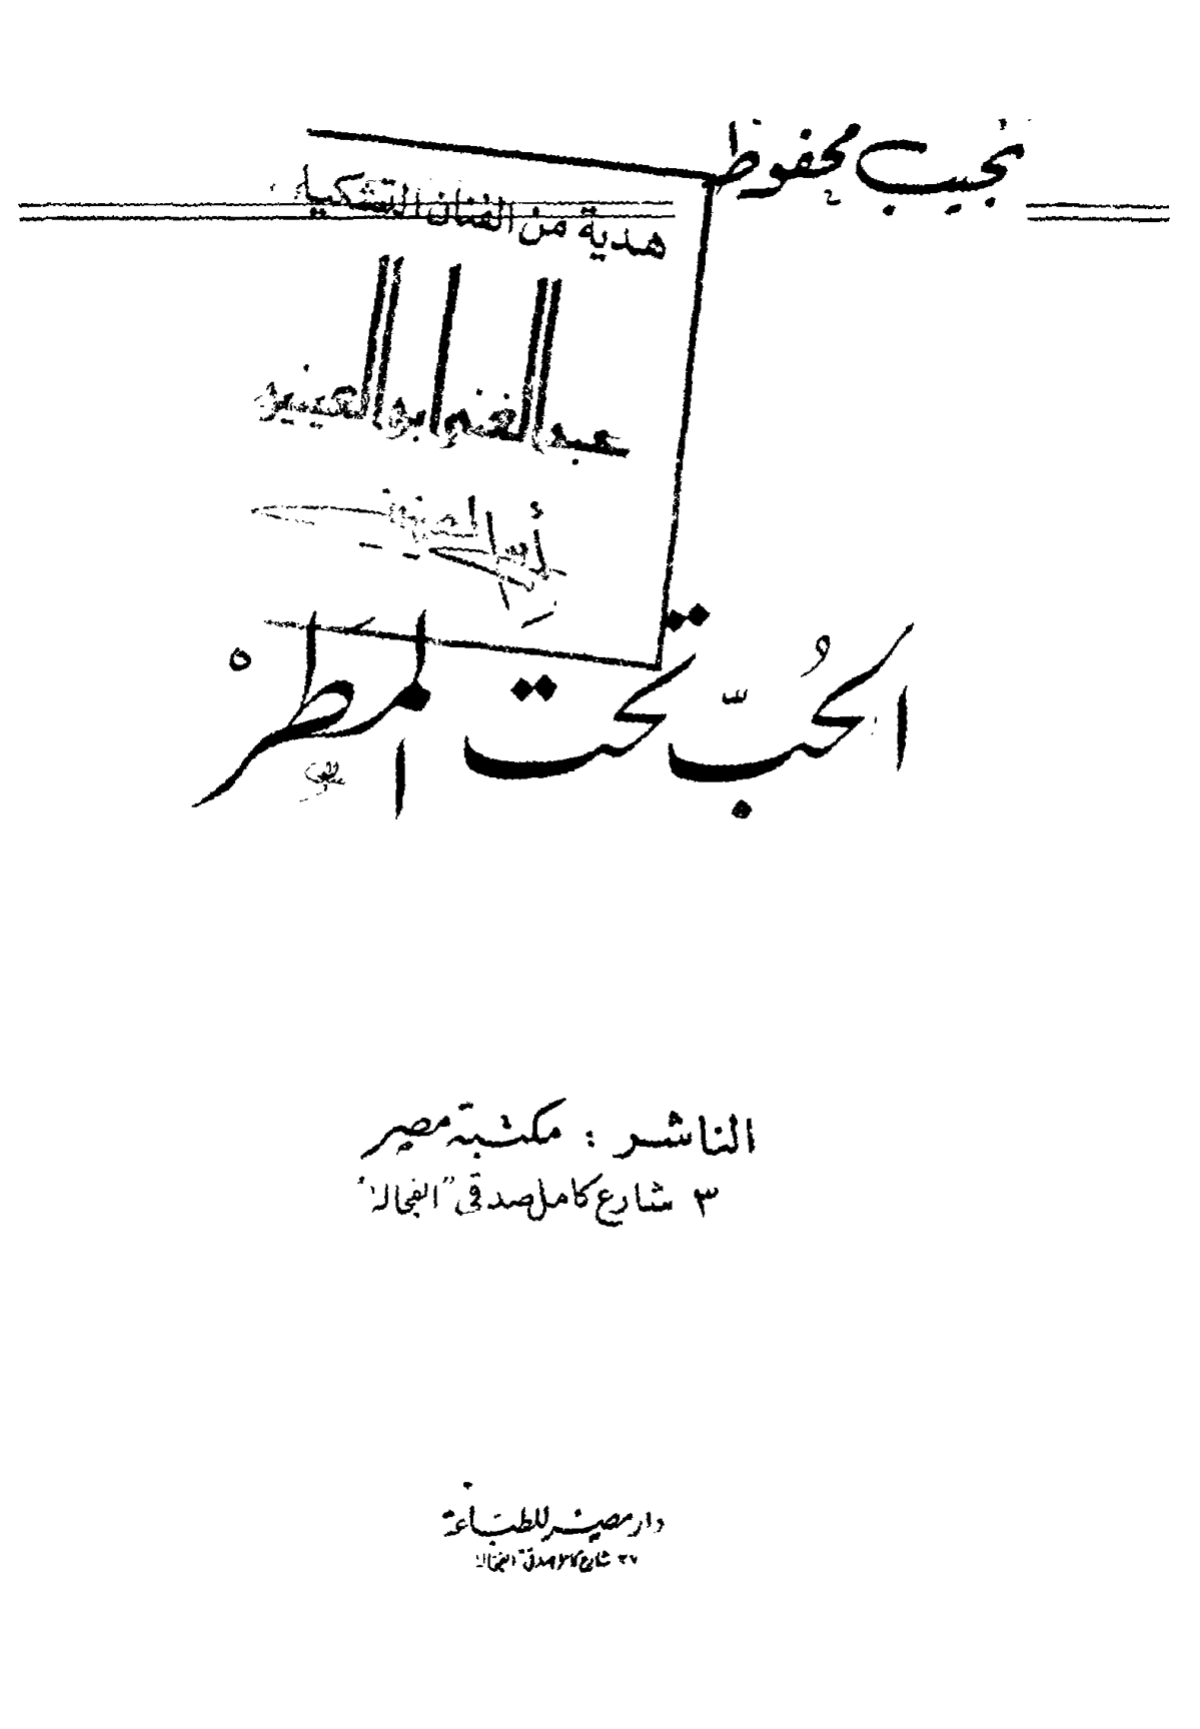 نجيب محفوظ
هدية من الفنان التشكيلي
عبد الغني ابو العينين
الحُبّ تحت المطَرْ
الناشر : مكتبة مصر
٣ شارع كامل صدقى "الفجالة"
دار مصر للطباعة
٣٧ شارع كامل صدقى الفجالة